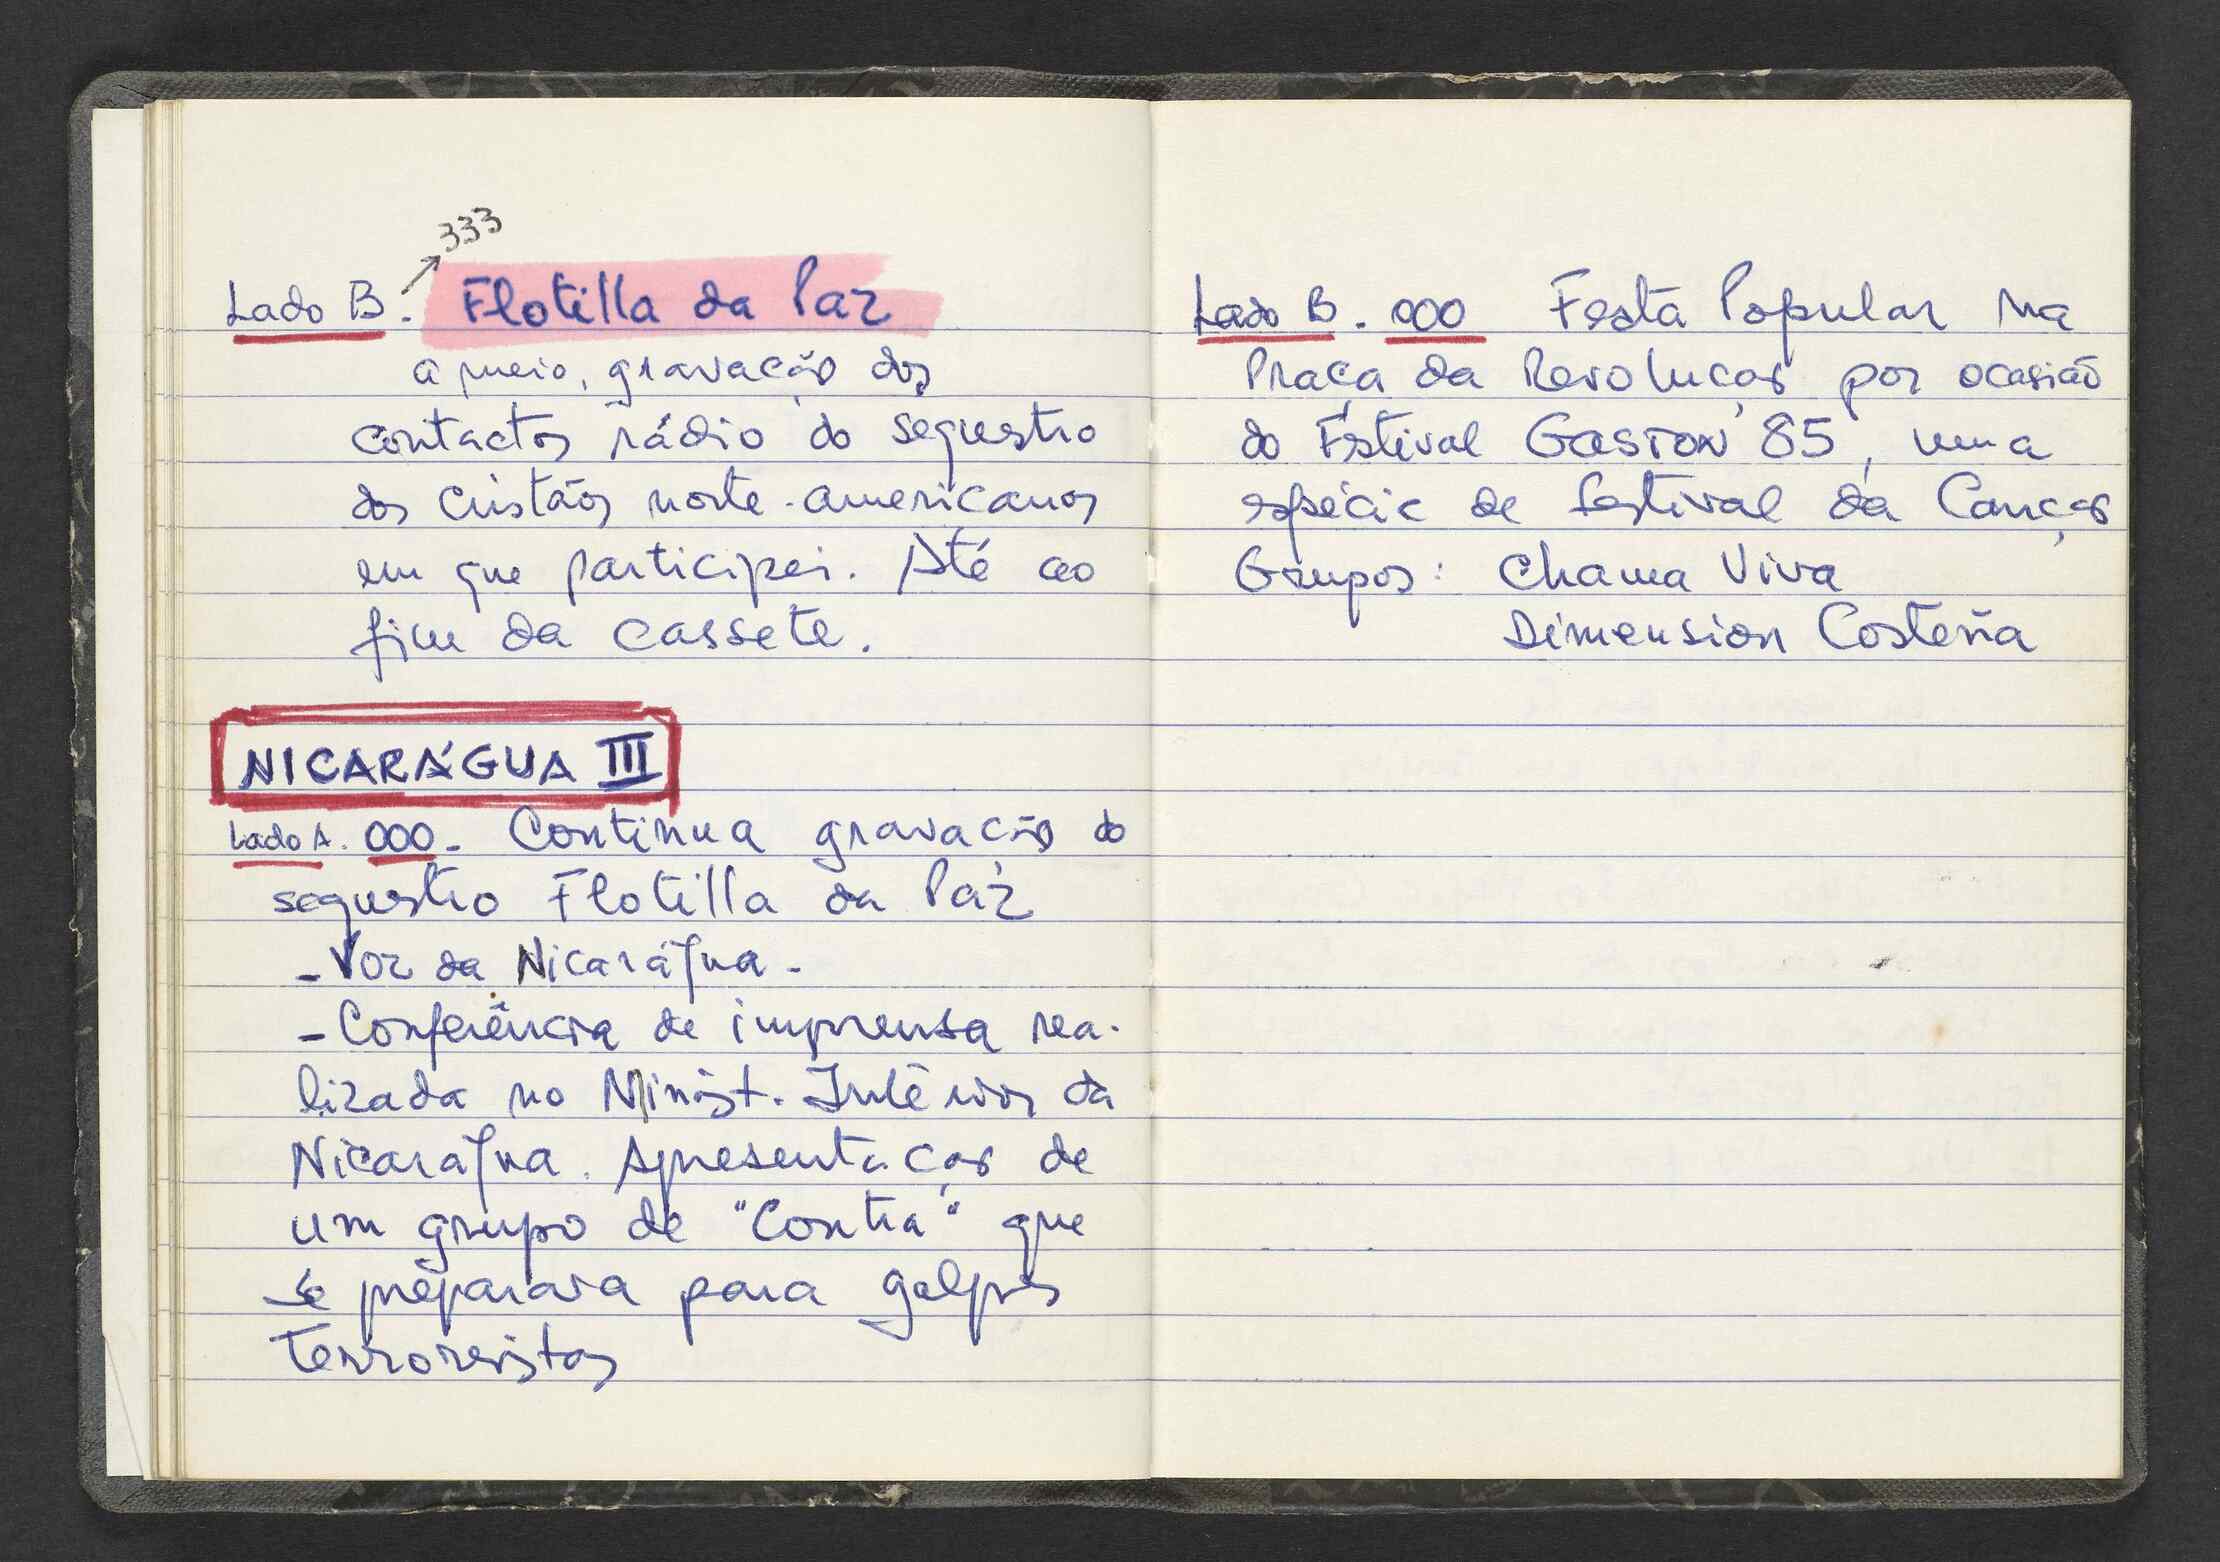 333
Lado B. Flotilla da Paz
a meio, gravação dos
contactos rádio do sequestro
dos cristãos norte-americanos
em que participei. Até ao
fim da cassete.
NICARÁGUA III
Lado A. 000 - Continua gravação do
sequestro Flotilla da Paz
- Voz da Nicarágua -
- Conferência de imprensa rea-
lizada no Minist. Intérior da
Nicarágua. Apresentação de
um grupo de "Contra" que
se préparava para golpes
Terroristas
Lado B. 000 Festa Popular na
Praça da Revolução por ocasião
do Festival GASTON 85, uma
espécie de festival da Canção
Grupos: Chama Viva
Dimension Costeña